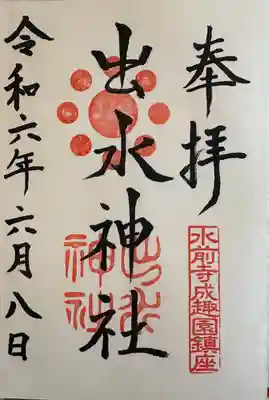 奉拝
水前寺成趣園鎮座
出水神社
出水神社
令和六年六月八日